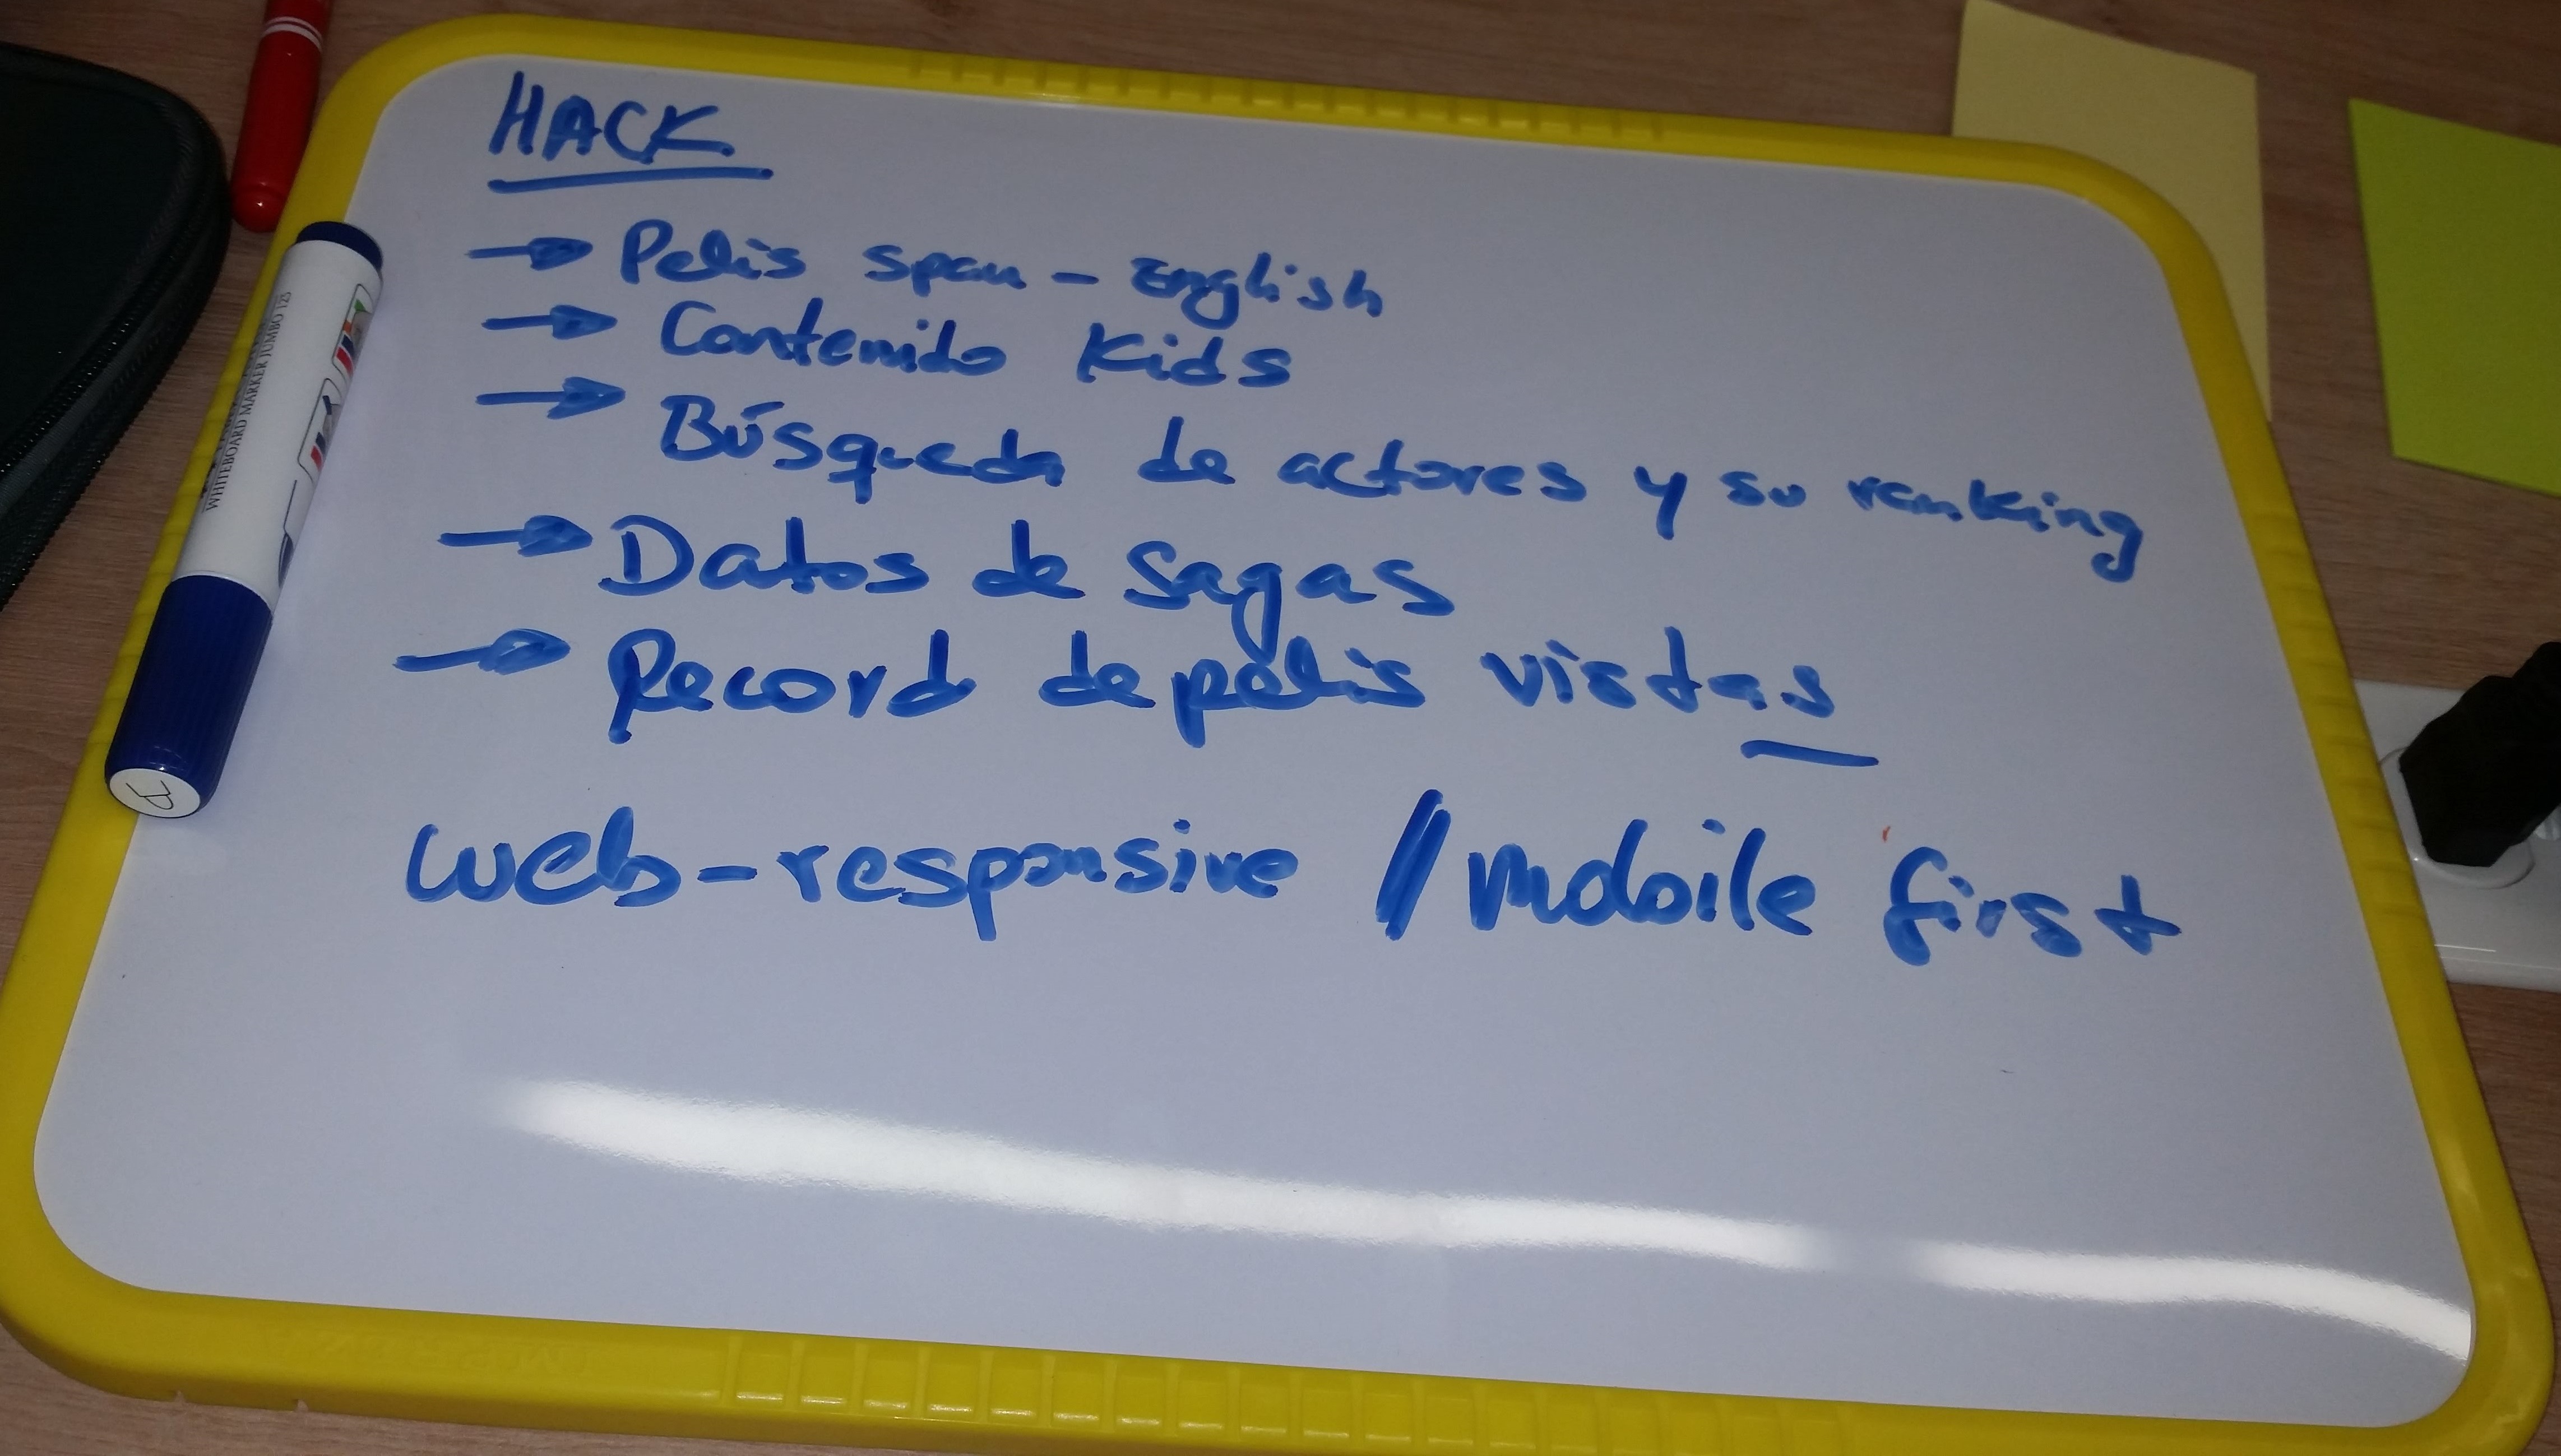 HACK
→ Pelis span - English
→ Contenido Kids
→ Búsqueda de actores y su ranking
→ Datos de sagas
→ Record de pelis vistas
web-responsive // mobile first
WHITEBOARD MARKER JUMBO 125